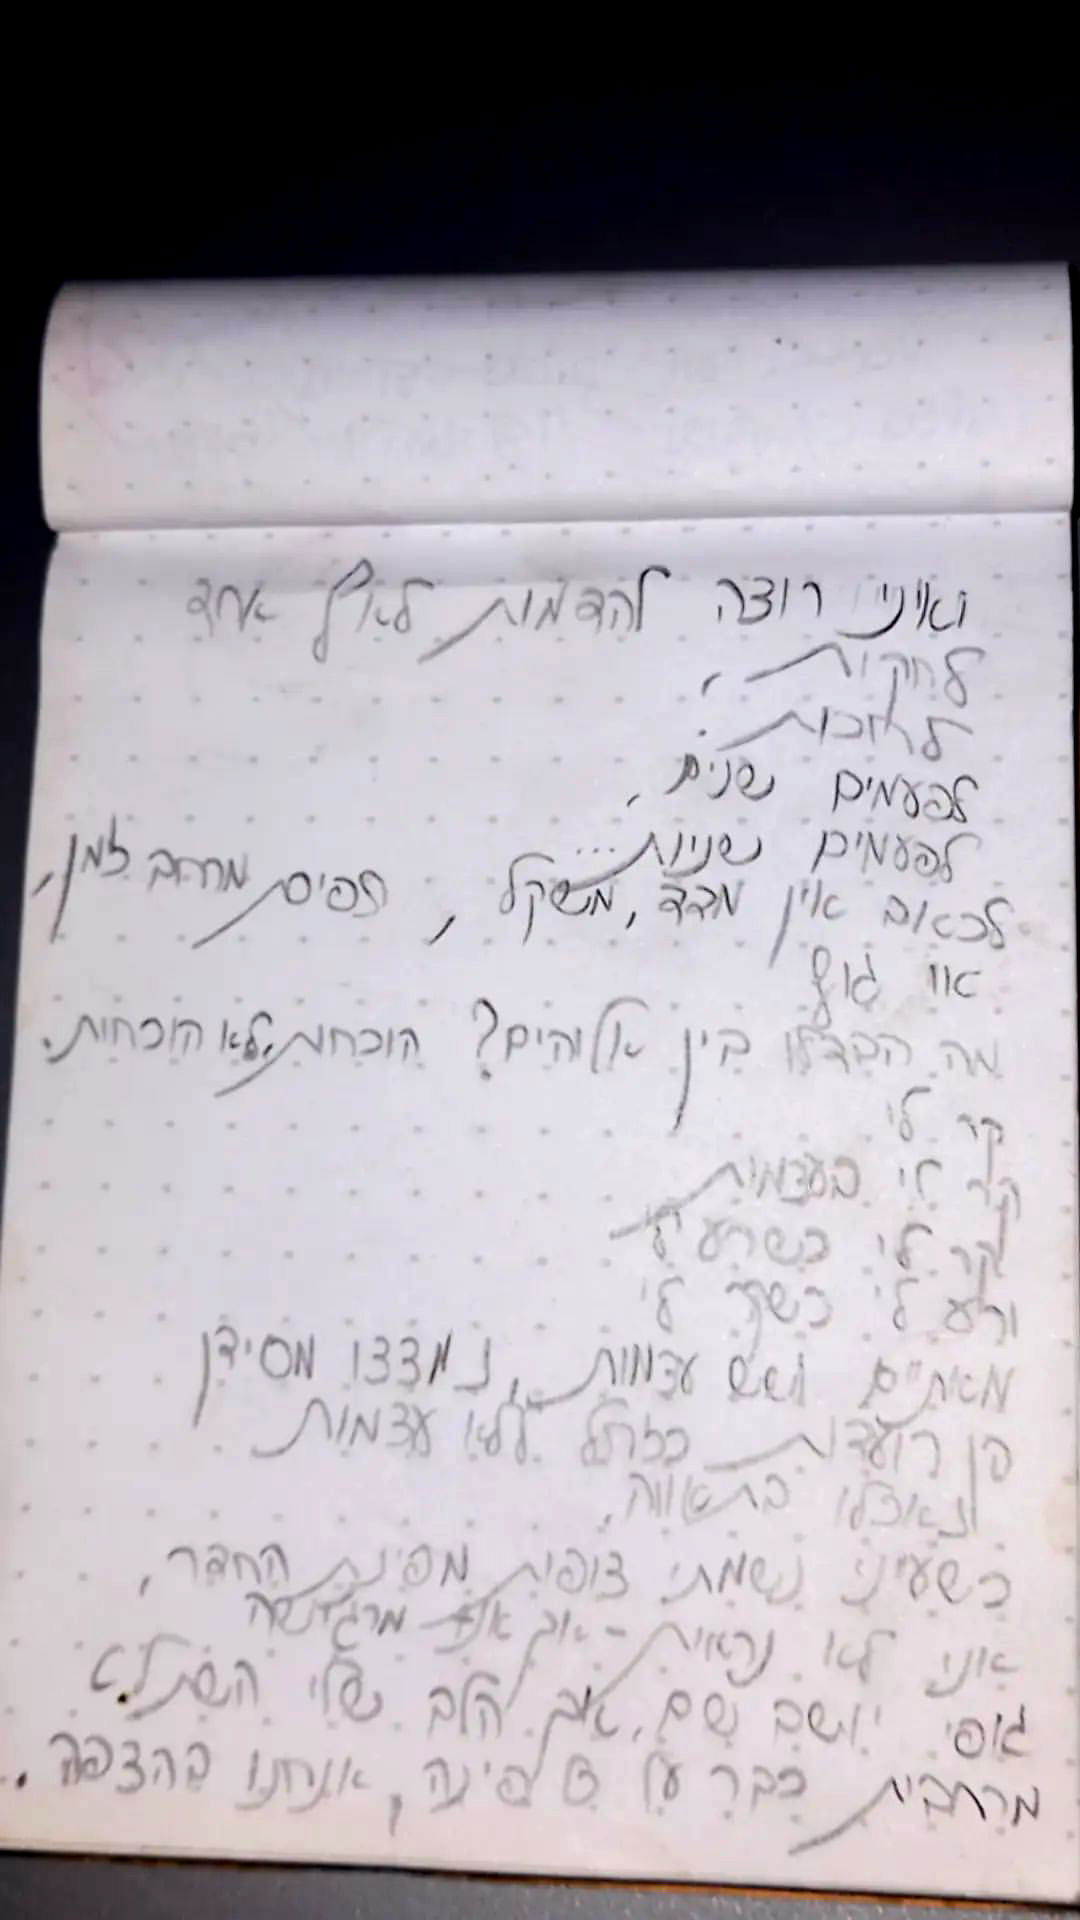 ואיני רוצה להדמות לאף אחד
לחקות,
לחכות.
לפעמים שנים,
לפעמים שניות...
לכאוב אין מדד, משקל, תפיס מרחב זמן,
או גוף
מה הבדלו בין אלוהים? הוכחת, לא הוכחות.
קר לי
קר לי בעצמות
קר לי כשרע לי
ורע לי כשקר לי
מאתיים ושש עצמות, נמצצו מסידן
הן רועדות כזרת ללא עצמות
נאצלו בתאווה.
כשעיני נשמתי צופות מפינת החדר,
אני לא נראית - אך אני מרגישה
גופי יושב שם, אך הלב שלי השתל
מרחבית כבר על פינה, אנחנו בהצפה.